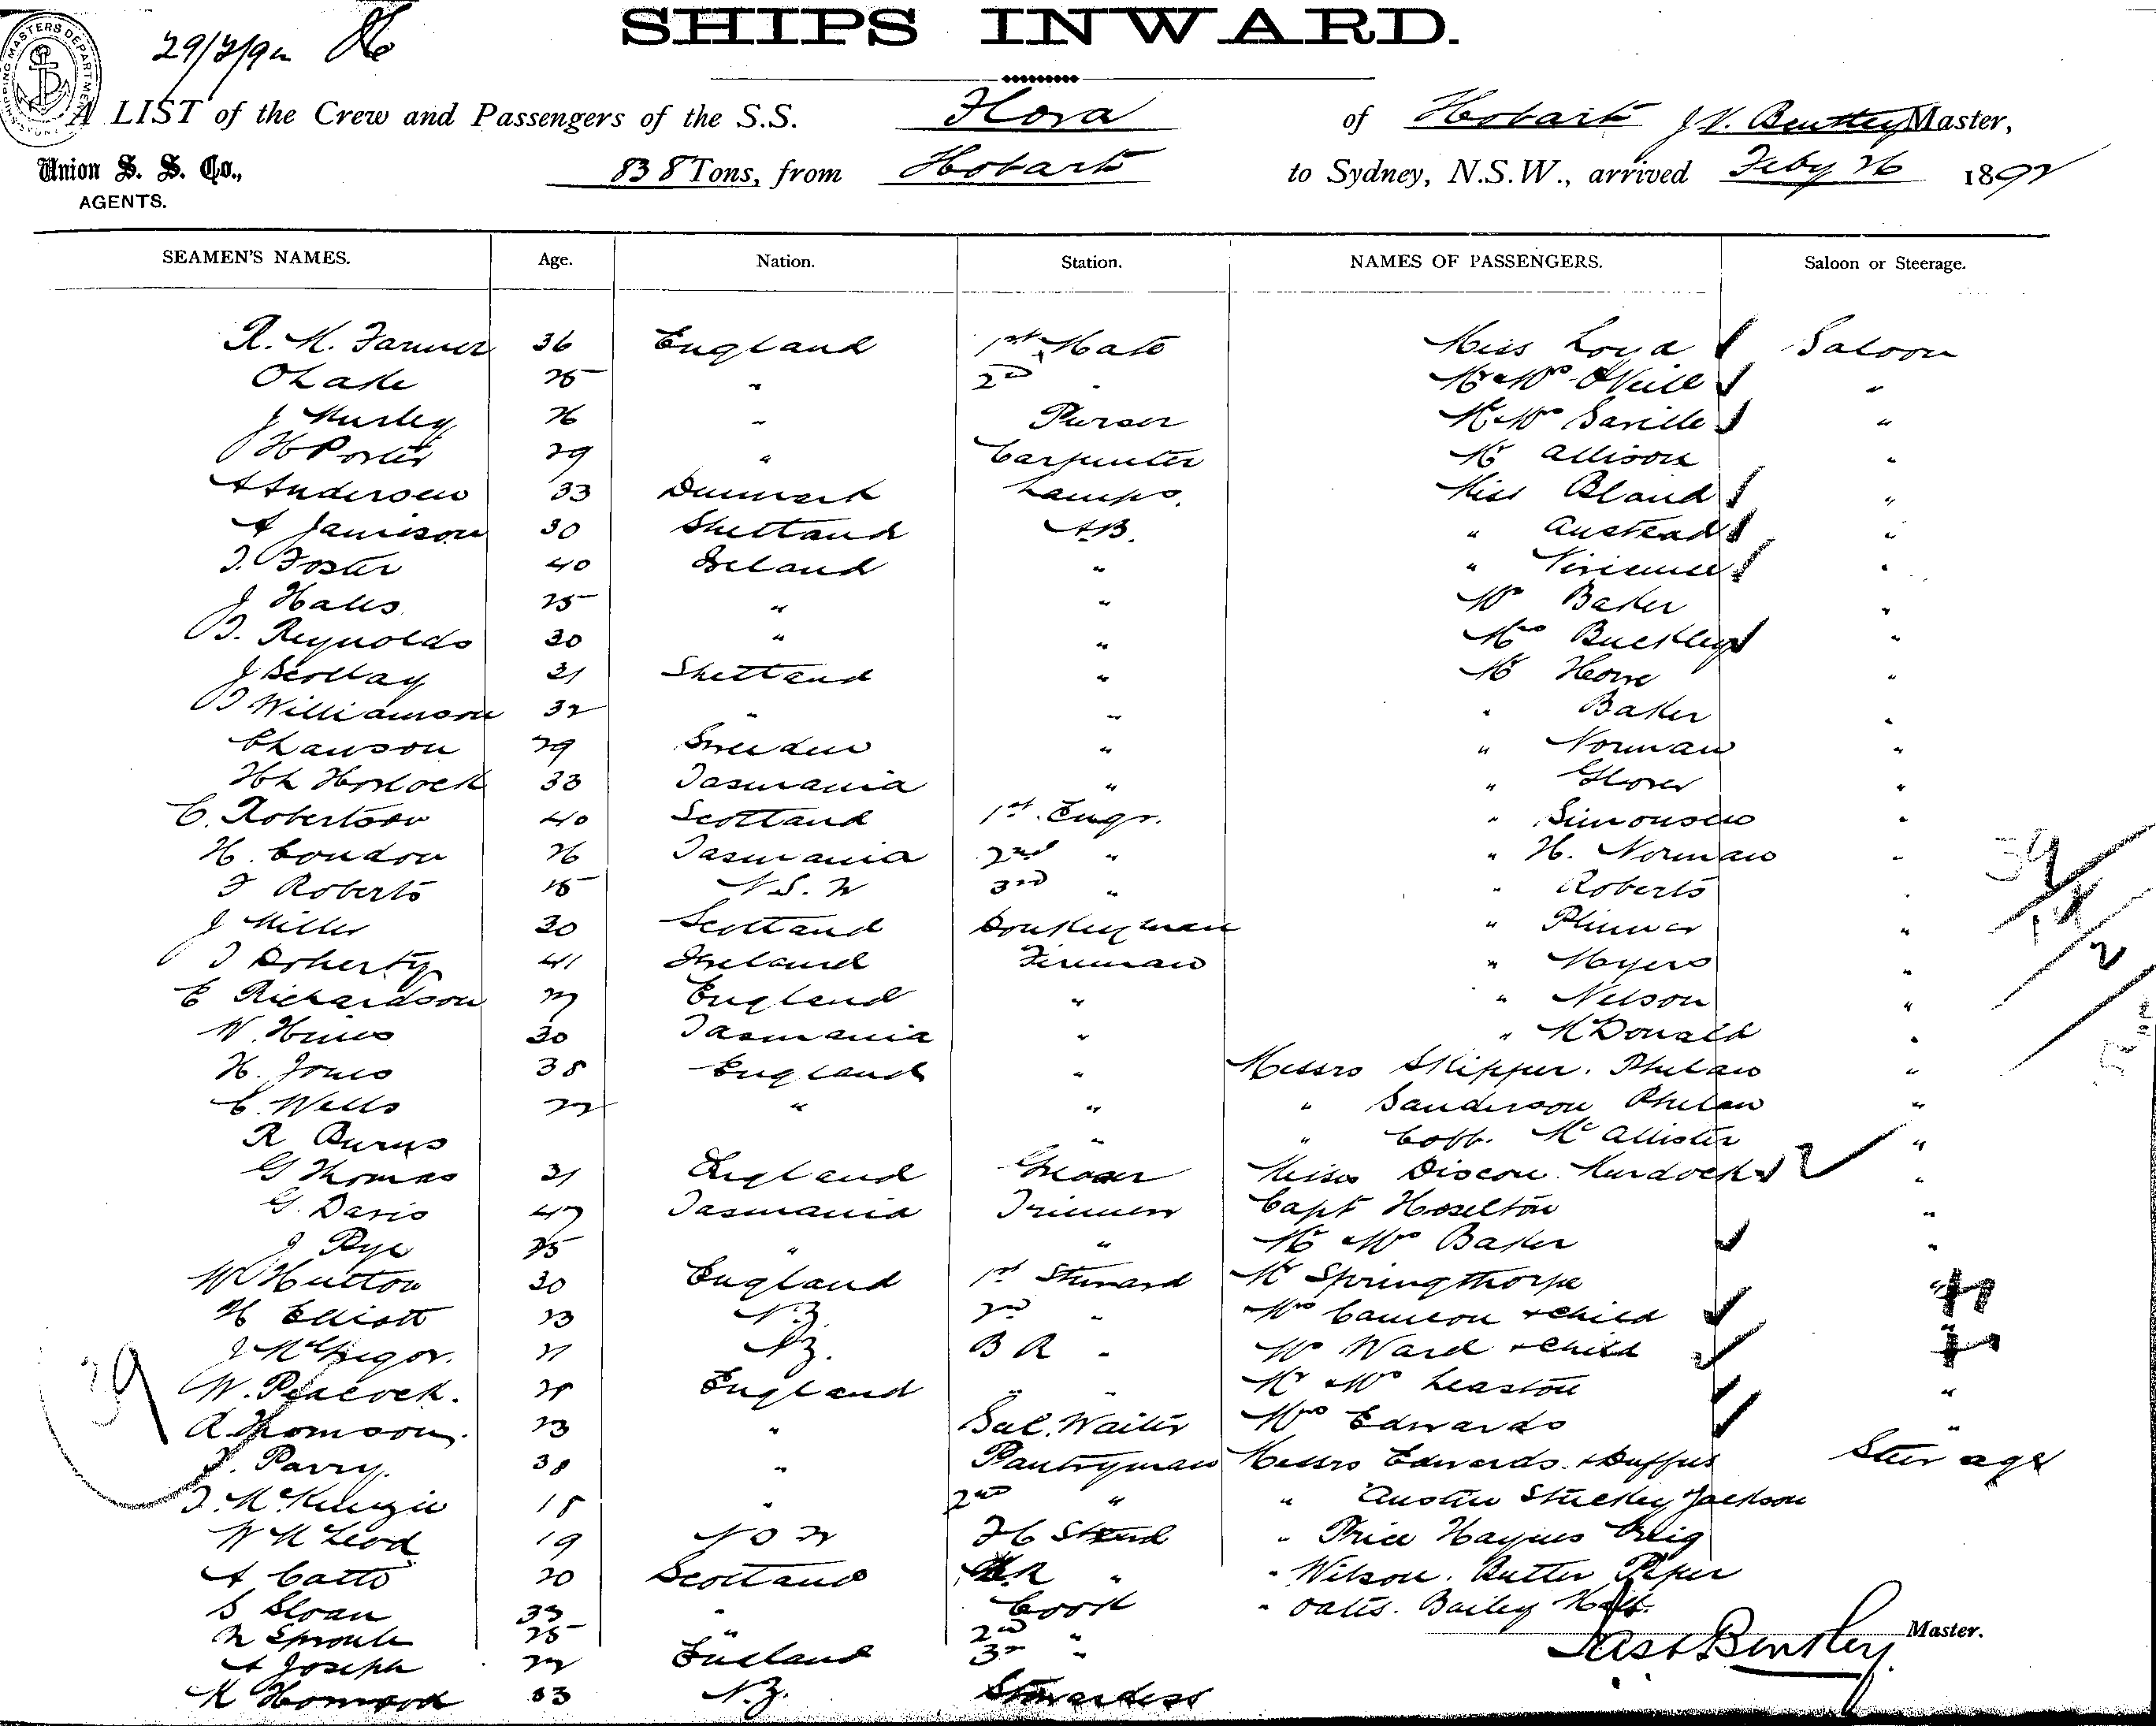 SHIPS INWARD.
29/2/92
SHIPPING MASTERS DEPARTMENT
A LIST of the Crew and Passengers of the S.S. Flora of Hobart J.V. Bentley Master,
Union S. S. Co., 838 Tons, from Hobart to Sydney, N.S.W., arrived Feby 26 1892
AGENTS.
SEAMEN'S NAMES. Age. Nation. Station. NAMES OF PASSENGERS. Saloon or Steerage.
R. M. Farmer 36 England 1st Mate Miss Loyd Saloon
O Lake 25 " 2nd " Mr & Mrs O'Neill "
J Hurley 26 " Purser Mr & Mrs Saville "
J H Porter 29 " Carpenter Mr Allison "
A Andersen 33 Denmark Lamps. Miss Bland "
A Jamieson 30 Shetland A.B. " Austead "
T. Foster 40 Ireland " " "
J Hales 25 " " Mr Baker "
T. Reynolds 30 " " Mrs Buckley "
J Scollay 21 Shetland " Mr Howe "
T Williamson 32 " " " Baker "
C Hanson 29 Sweden " " Norman "
H L Horlock 33 Tasmania " " Glover "
C. Robertson 40 Scotland 1st Engr. " Simonsen "
H. Condon 26 Tasmania 2nd " " H. Norman "
F Roberts 25 N.S.W 3rd " " Roberts "
J Miller 30 Scotland Donkeyman " Plummer "
J Doherty 41 Ireland Fireman " Myers "
E Richardson 27 England " " Nelson "
W. Hines 30 Tasmania " " McDonald "
H. Jones 38 England " Messrs Skipper. Phelan "
C. Wells 22 " " " Sanderson Phelan "
R Burns " " Cobb. McAllister "
G Thomas 31 England Greaser Misses Discon. Murdoch "
G. Davis 47 Tasmania Trimmer Capt Haselton "
J Pye 25 " " Mr & Mrs Baker "
W Hutton 30 England 1st Steward Mr Springthorpe "
H Elliott 23 N.Z. 2nd " Mrs Cameron & Child "
J McGregor. 21 N.Z. B R " Mrs Ward & Child "
W. Peacock. England " " Mr & Mrs Leaston "
R. Thomson. 23 " Sal. Waiter Mrs Edwards "
J. Parry. 38 " Pantryman Messrs Edwards & Duffus Steerage
J. McKenzie 18 " 2nd " " Austin Stuckey Jackson
W McLeod 19 N S W F C Steward " Price Haynes Craig
A Catto 20 Scotland " " Wilson. Butter Piper
S Sloan 33 " Cook " Oates. Bailey Holt.
N Sproule 25 " 2nd "
A Joseph 22 England 3rd "
Jas V Bentley Master.
K Hammond 33 N.Z. Stewardess
39